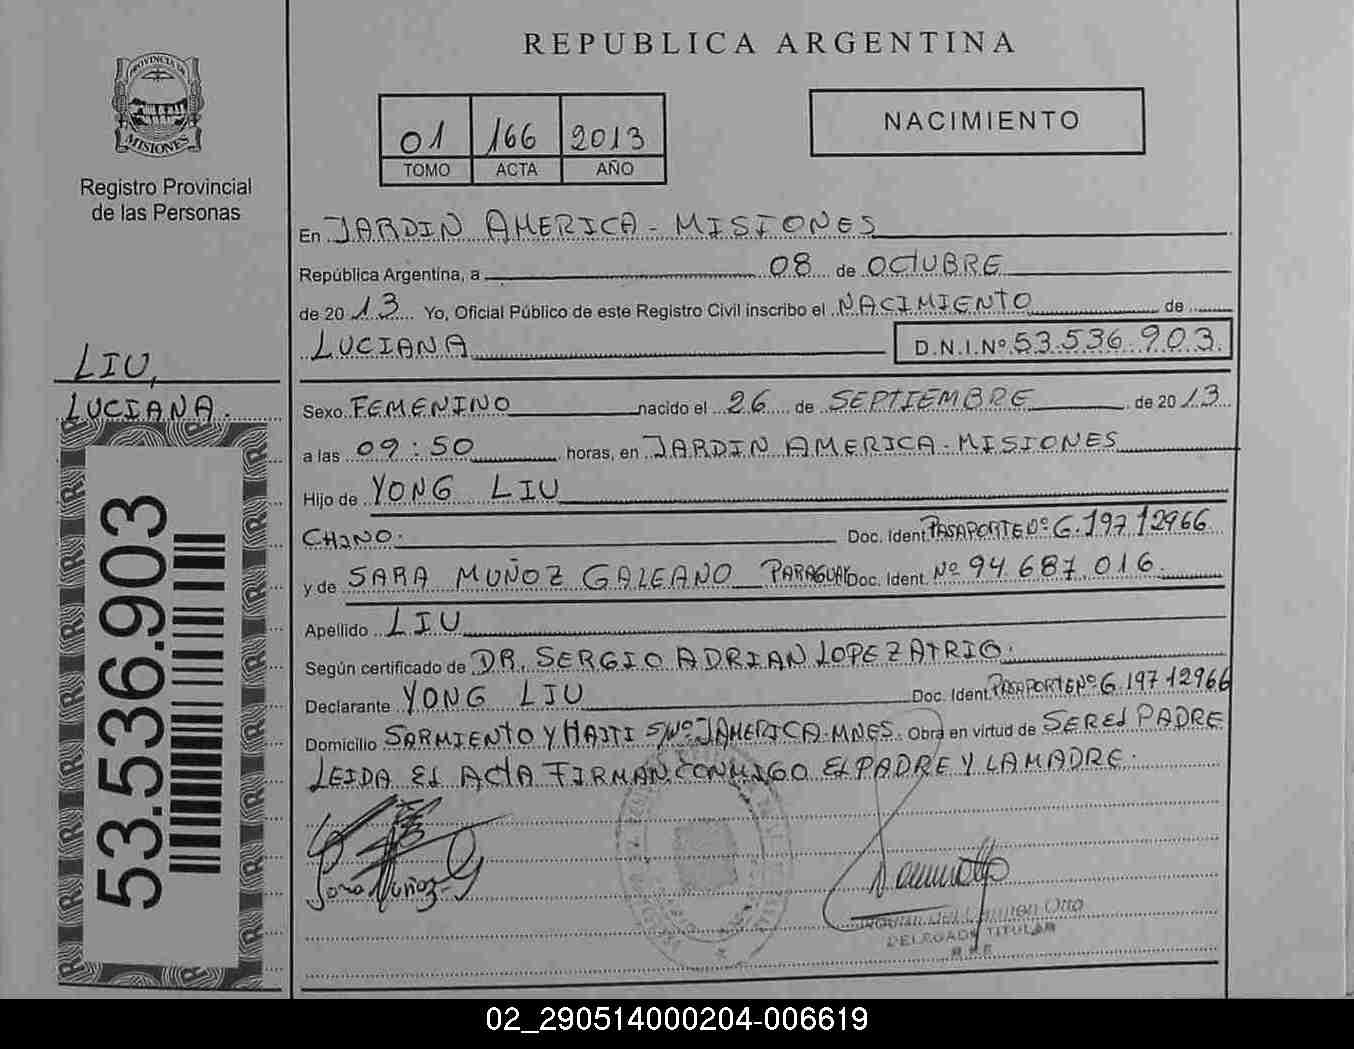 REPUBLICA ARGENTINA
PROVINCIA DE
MISIONES
Registro Provincial
de las Personas
01 166 2013
TOMO ACTA AÑO
NACIMIENTO
En JARDIN AMERICA - MISIONES
República Argentina, a 08 de OCTUBRE
de 2013 Yo, Oficial Público de este Registro Civil inscribo el NACIMIENTO de
LUCIANA D.N.I.Nº 53.536.903.
LIU,
LUCIANA.
53.536.903
Sexo FEMENINO nacido el 26 de SEPTIEMBRE de 2013
a las 09:50 horas, en JARDIN AMERICA - MISIONES
Hijo de YONG LIU
CHINO. Doc. Ident. PASAPORTE Nº G.19712966
y de SARA MUÑOZ GALEANO PARAGUAY Doc. Ident. Nº 94.687.016.
Apellido LIU
Según certificado de DR. SERGIO ADRIAN LOPEZ ATRIO.
Declarante YONG LIU Doc. Ident. PASAPORTE Nº G.19712966
Domicilio SARMIENTO Y HAITI S/Nº J AMERICA-MNES. Obra en virtud de SER EL PADRE
LEIDA EL ACTA FIRMAN CONMIGO EL PADRE Y LA MADRE.
Sara Muñoz G
Del Carmen Otto
DELEGADA TITULAR
02_290514000204-006619